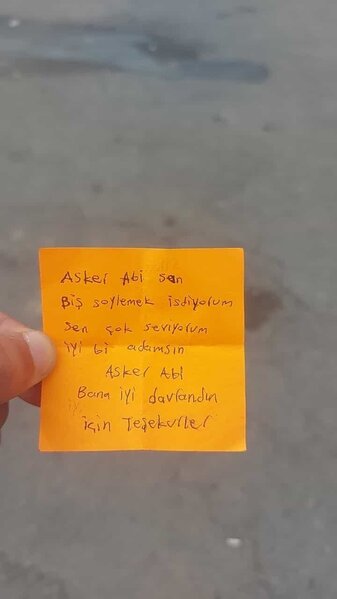 Asker Abi san
Biş soylemek isdiyolum
sen çok seviyolum
iyi bi adamsın
Asker Abi
Bana iyi davrandın
için Teşekurler